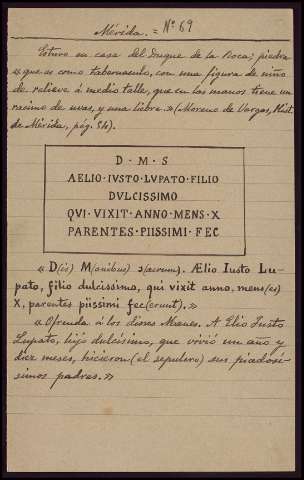 Mérida. = Nº 69
Estuvo en casa del Duque de la Roca; piedra
« que es como tabernaculo, con una figura de niño
de relieve á medio talle, que en las manos tiene un
racimo de uvas, y una liebre. » (Moreno de Vargas, Hist.
de Mérida, pág. 54).
D · M · S
AELIO · IVSTO · LVPATO · FILIO
DVLCISSIMO
QVI · VIXIT · ANNO · MENS · X
PARENTES · PIISSIMI · FEC
« D(is) M(anibus) s(acrum). Ælio Iusto Lu-
pato, filio dulcissimo, qui vixit anno, mens(es)
X, parentes piissimi fec(erunt). »
« Ofrenda á los dioses Manes. A Elio Justo
Lupato, hijo dulcísimo, que vivió un año y
diez meses, hicieron (el sepulcro) sus piadosí-
simos padres. »